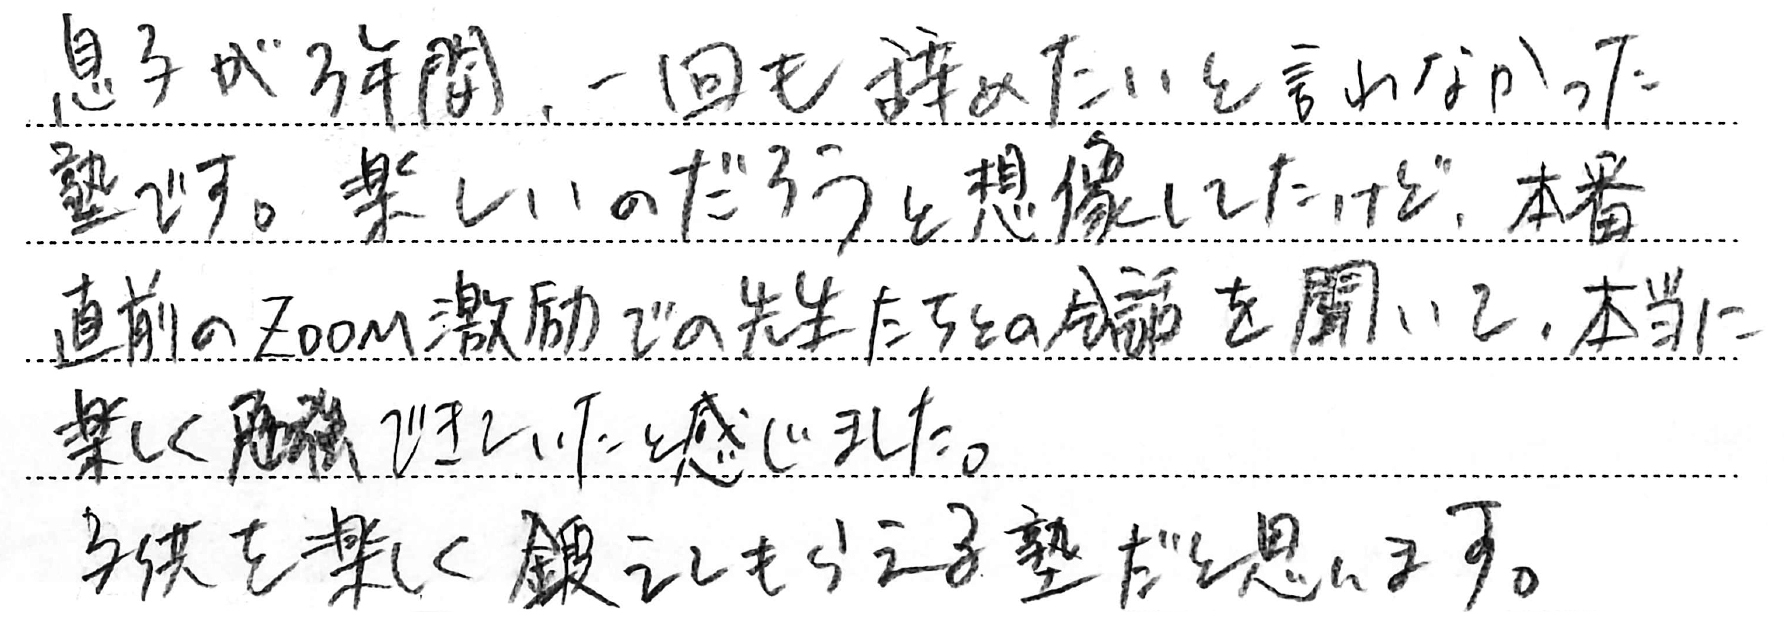 息子が3年間、一回も辞めたいと言わなかった
塾です。楽しいのだろうと想像してたけど、本番
直前のZOOM激励での先生たちとの会話を聞いて、本当に
楽しく勉強できていたと感じました。
子供を楽しく鍛えてもらえる塾だと思います。